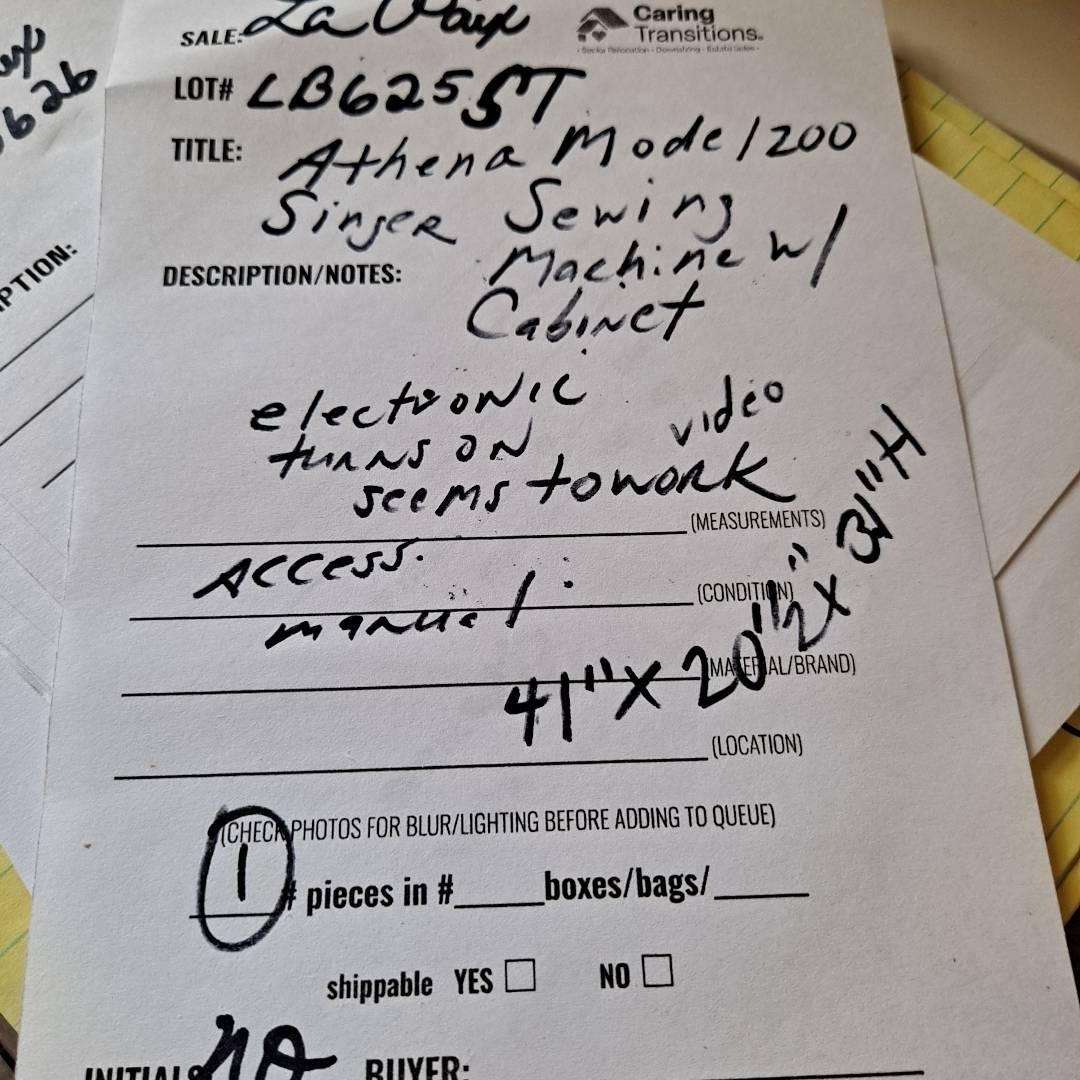 Caring
Transitions.
SALE: La
LOT# LB6255T
TITLE: Athena Model 200
Singer Sewing
Machine w/
DESCRIPTION/NOTES:
Cabinet
electronic
video
turns on
seems to work
(MEASUREMENTS)
Access.
(CONDITION)
manual
(MATERIAL/BRAND)
41" x 20 1/2" x 31" H
(LOCATION)
(CHECK PHOTOS FOR BLUR/LIGHTING BEFORE ADDING TO QUEUE)
1 # pieces in #____boxes/bags/____
shippable YES NO
INITIALS BUYER:
PTION:
626